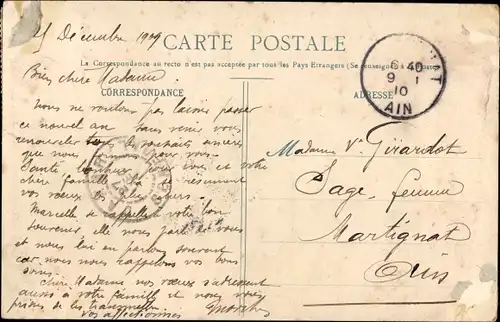 25 Décembre 1909
CARTE POSTALE
La Correspondance au recto n'est pas acceptée par tous les Pays Etrangers (Se renseigner à la Poste)
CORRESPONDANCE
ADRESSE
6 40
9 - 1
10
AIN
Bien chère Madame
Nous ne voulons pas laisser passer
ce nouvel an sans venir vous
renouveler les souhaits sincères
que nous pour vous.
Santé et votre
chère famille résument
vos vœux
Marcelle se rappelle votre bon
souvenir elle nous parle de vous
et nous lui en parlons souvent
car nous nous rappelons vos bons
soins.
Chère Madame nos vœux s'adressent
aussi à votre famille et nous vous
prions de les transmettre
Vos affectionnés
Madame Vve Girardot
Sage femme
Martignat
Ain